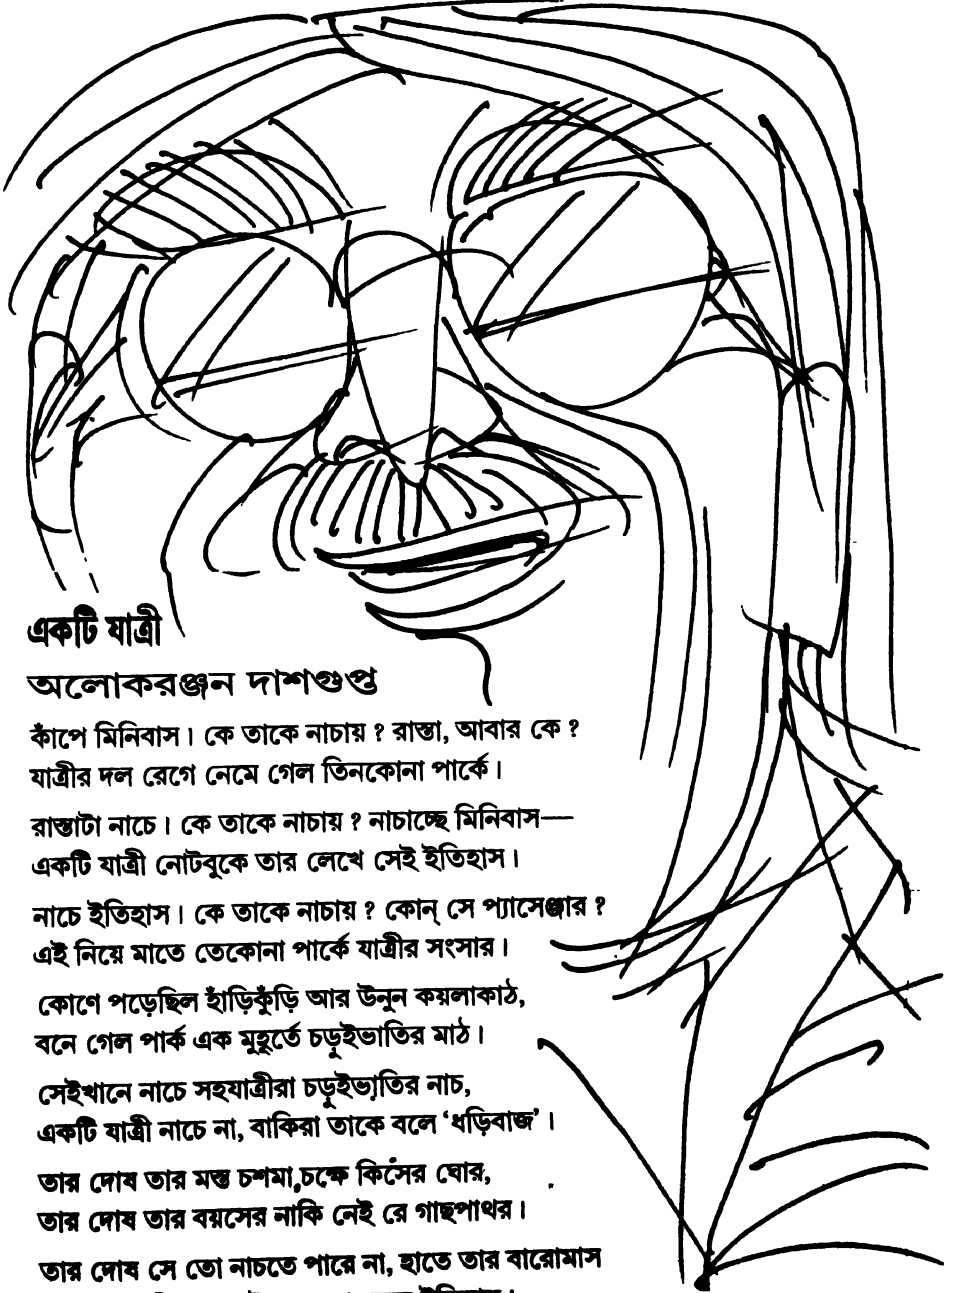 একটি যাত্রী
অলোকরঞ্জন দাশগুপ্ত
কাঁপে মিনিবাস। কে তাকে নাচায় ? রাস্তা, আবার কে ?
যাত্রীর দল রেগে নেমে গেল তিনকোনা পার্কে।
রাস্তাটা নাচে। কে তাকে নাচায় ? নাচাচ্ছে মিনিবাস—
একটি যাত্রী নোটবুকে তার লেখে সেই ইতিহাস।
নাচে ইতিহাস। কে তাকে নাচায় ? কোন্ সে প্যাসেঞ্জার ?
এই নিয়ে মাতে তেকোনা পার্কে যাত্রীর সংসার।
কোণে পড়েছিল হাঁড়িকুঁড়ি আর উনুন কয়লাকাঠ,
বনে গেল পার্ক এক মুহূর্তে চড়ুইভাতির মাঠ।
সেইখানে নাচে সহযাত্রীরা চড়ুইভাতির নাচ,
একটি যাত্রী নাচে না, বাকিরা তাকে বলে ‘ধড়িবাজ’।
তার দোষ তার মস্ত চশমা, চক্ষে কিসের ঘোর,
তার দোষ তার বয়সের নাকি নেই রে গাছপাথর।
তার দোষ সে তো নাচতে পারে না, হাতে তার বারোমাস